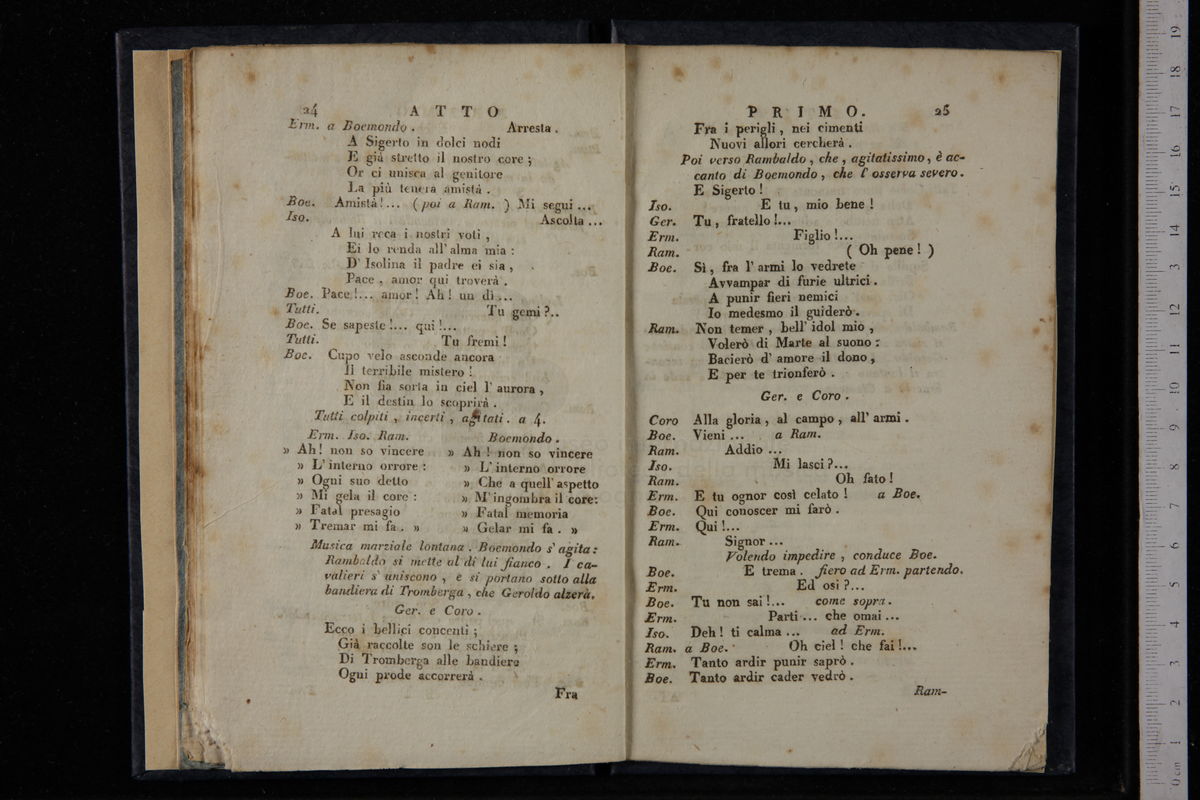 24 ATTO
Erm. a Boemondo. Arresta.
A Sigerto in dolci nodi
E già stretto il nostro core;
Or ci unisca al genitore
La più tenera amistà.
Boe. Amistà!... (poi a Ram.) Mi segui...
Iso. Ascolta...
A lui reca i nostri voti,
Ei lo renda all'alma mia:
D'Isolina il padre ei sia,
Pace, amor qui troverà.
Boe. Pace!... amor! Ah! un dì...
Tutti. Tu gemi?..
Boe. Se sapeste!... qui!...
Tutti. Tu fremi!
Boe. Cupo velo asconde ancora
Il terribile mistero!
Non fia sorta in ciel l'aurora,
E il destin lo scoprirà.
Tutti colpiti, incerti, agitati. a 4.
Erm. Iso. Ram. Boemondo.
» Ah! non so vincere » Ah! non so vincere
» L'interno orrore: » L'interno orrore
» Ogni suo detto » Che a quell'aspetto
» Mi gela il core: » M'ingombra il core:
» Fatal presagio » Fatal memoria
» Tremar mi fa. » » Gelar mi fa. »
Musica marziale lontana. Boemondo s'agita:
Rambaldo si mette al di lui fianco. I ca-
valieri s'uniscono, e si portano sotto alla
bandiera di Tromberga, che Geroldo alzerà.
Ger. e Coro.
Ecco i bellici concenti;
Già raccolte son le schiere;
Di Tromberga alle bandiere
Ogni prode accorrerà.
Fra
PRIMO. 25
Fra i perigli, nei cimenti
Nuovi allori cercherà.
Poi verso Rambaldo, che, agitatissimo, è ac-
canto di Boemondo, che l'osserva severo.
E Sigerto!
Iso. E tu, mio bene!
Ger. Tu, fratello!...
Erm. Figlio!...
Ram. (Oh pene!)
Boe. Sì, fra l'armi lo vedrete
Avvampar di furie ultrici.
A punir fieri nemici
Io medesmo il guiderò.
Ram. Non temer, bell'idol mio,
Volerò di Marte al suono:
Bacierò d'amore il dono,
E per te trionferò.
Ger. e Coro.
Coro Alla gloria, al campo, all'armi.
Boe. Vieni... a Ram.
Ram. Addio...
Iso. Mi lasci?...
Ram. Oh fato!
Erm. E tu ognor così celato! a Boe.
Boe. Qui conoscer mi farò.
Erm. Qui!...
Ram. Signor...
Volendo impedire, conduce Boe.
Boe. E trema. fiero ad Erm. partendo.
Erm. Ed osi?...
Boe. Tu non sai!... come sopra.
Erm. Parti... che omai...
Iso. Deh! ti calma... ad Erm.
Ram. a Boe. Oh ciel! che fai!...
Erm. Tanto ardir punir saprò.
Boe. Tanto ardir cader vedrò.
Ram-
0 cm 1 2 3 4 5 6 7 8 9 10 11 12 13 14 15 16 17 18 19